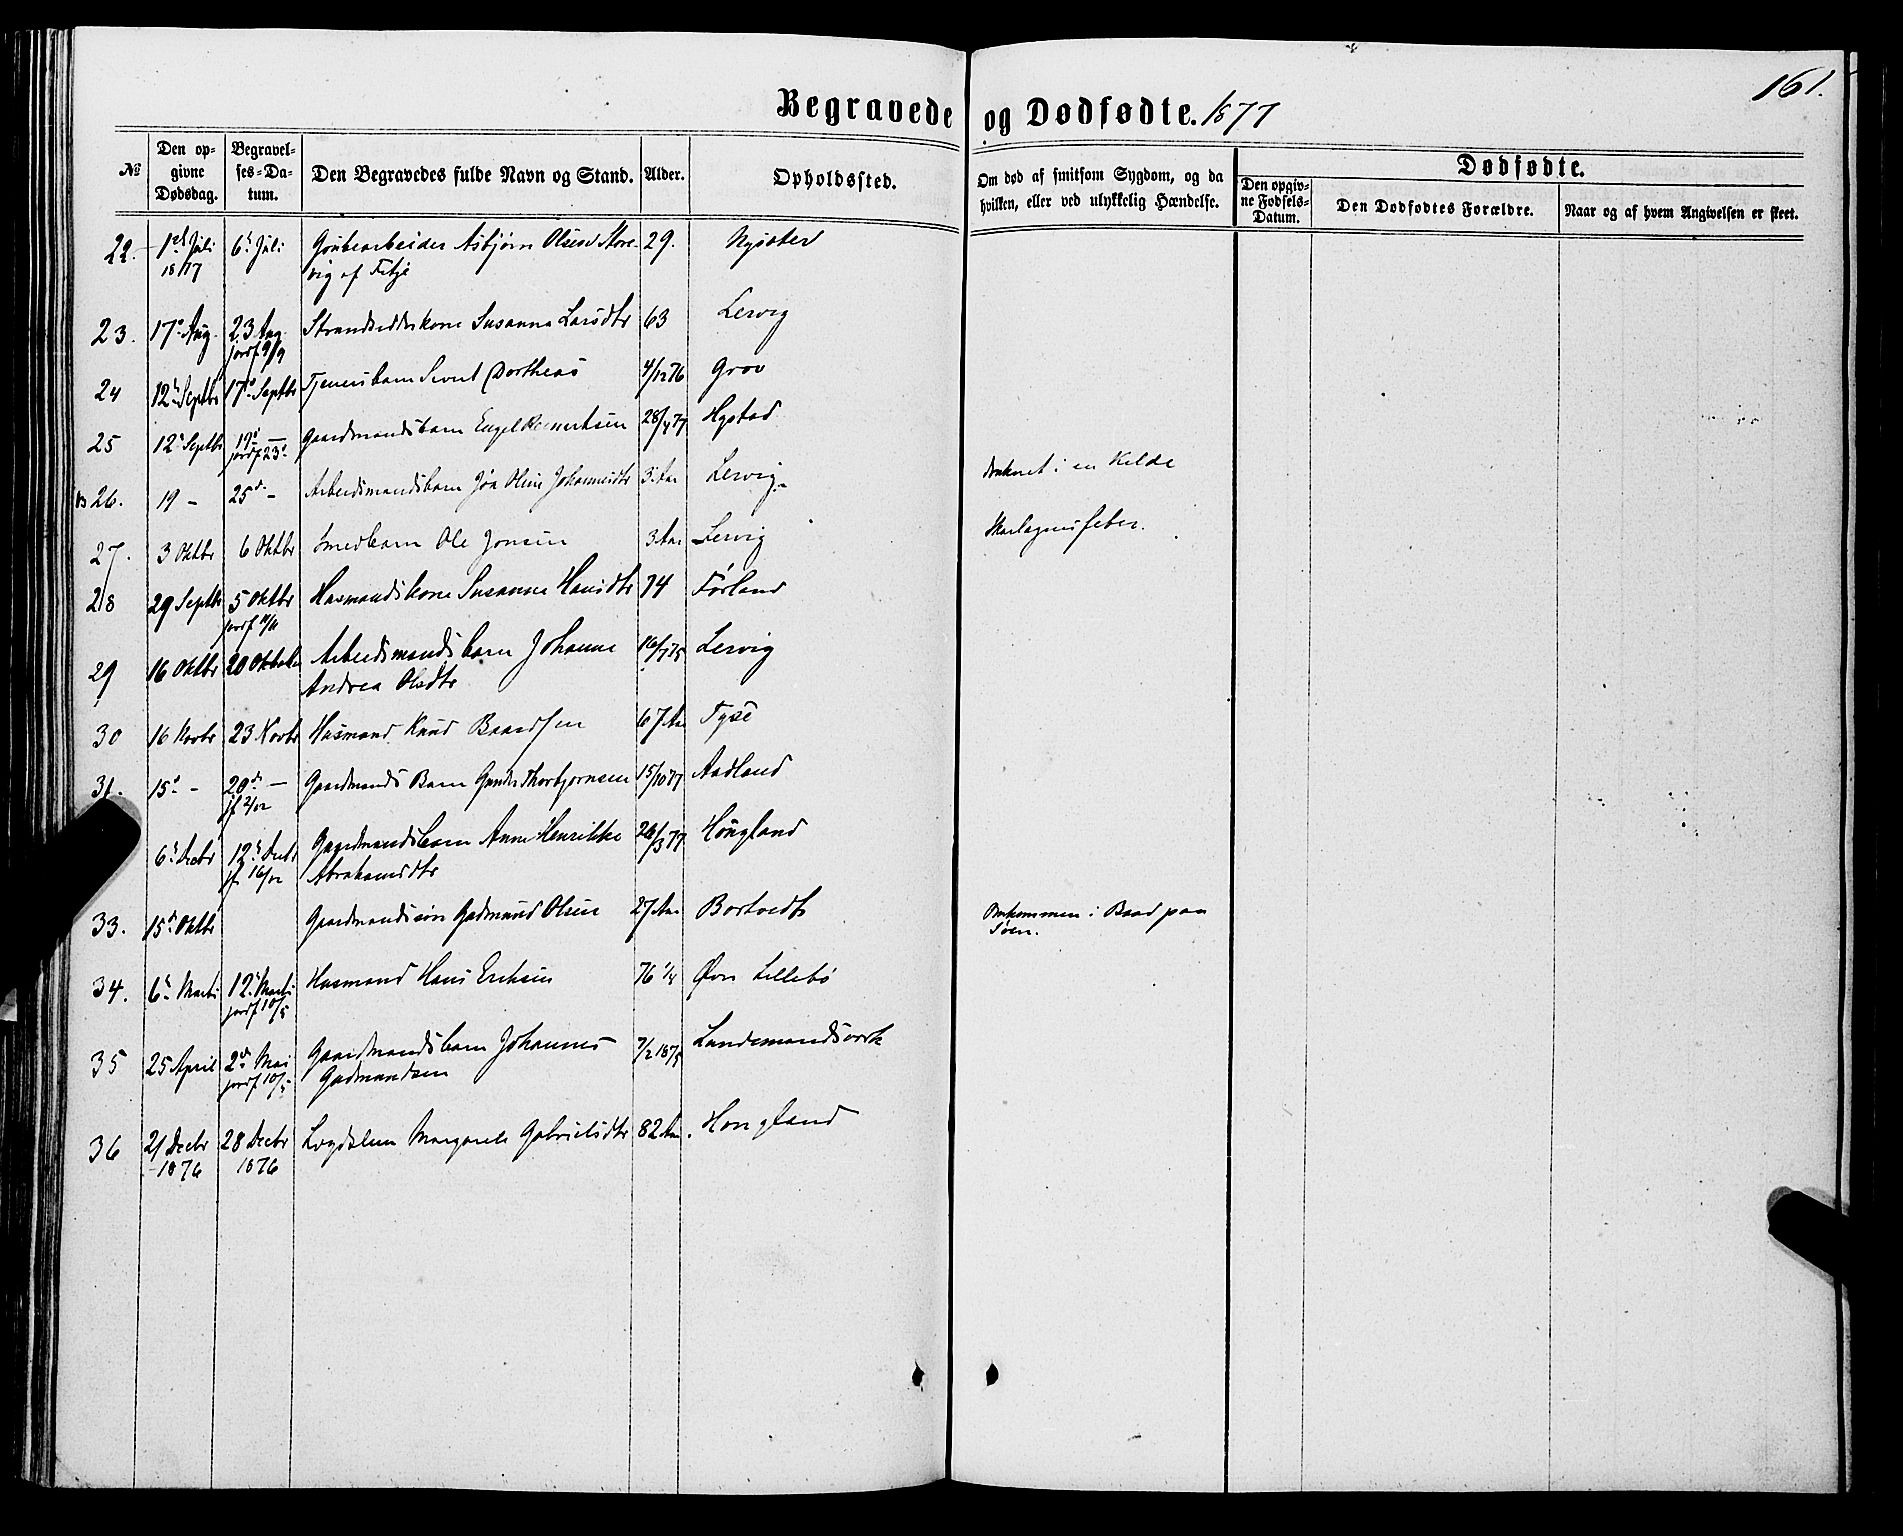 161.
Begravede og Dødfødte. 1877
№
Den opgivne Dødsdag.
Begravelses-Datum.
Den Begravedes fulde Navn og Stand.
Alder.
Opholdssted.
Om død af smitsom Sygdom, og da hvilken, eller ved ulykkelig Hændelse.
Dødfødte.
Den opgivne Fødsels-Datum.
Den Dødfødtes Forældre.
Naar og af hvem Angivelsen er skeet.
22. 1 Juli 6 Juli Grubearbeider Asbjørn Olsen Store- 29. Nysæter
1877 vig af Fitje
23. 17 Aug. 23 Aug. Strandsidderkone Susanna Larsdtr 63 Lervig
jordf 9/9
24 12 Septbr 17 Septbr Tjenersbarn Sivert Dortheas 4/12 76 Grov
25 12 Septbr 19 — Gaardmandsbarn Engel Reinertsen 28/4 77 Hystad
jordf 23
26. 19 - 25 - Arbeidsmandsbarn Oline Johannesdtr 3 Aar Lervig druknet i en Kilde
27. 3 Oktbr 6 Oktbr Smedbarn Ole Jonsen 3 Aar Lervig Skarlagensfeber.
28 29 Septbr 5 Oktbr Husmandskone Susanne Hansdtr 74 Førland
jordf 11/11
29 16 Oktbr 20 Oktober Arbeidsmandsbarn Johanne 16/7 75 Lervig
Andrea Olsdtr
30 16 Novbr 23 Novbr Husmand Knud Baardsen 67 Aar Tyse
31. 15 - 20 — Gaardmands Barn Gunder Thorbjørnsen 15/10 77 Aadland
jf 2/12
6 Decbr 12 Decbr Gaardmandsbarn Anne Henrikke 26/3 77 Høugland
jf 16/12 Abrahamsdtr
33. 15 Oktbr Gaardmandssøn Gudmund Olsen 27 Aar Bortvedt Omkommen i Baad paa
Søen.
34. 6 Marts 12 Marts Husmand Hans Eriksen 76 1/4 Øvr Lillebø
jordf 10/5
35 25 April 2 Mai Gaardmandsbarn Johannes 7/2 1875 Landsmandsverk
jordf 10/5 Gudmundsen
36 21 Decbr 28 Decbr Margarete Gabrielsdtr 82 Aar. Hougland
1876 1876